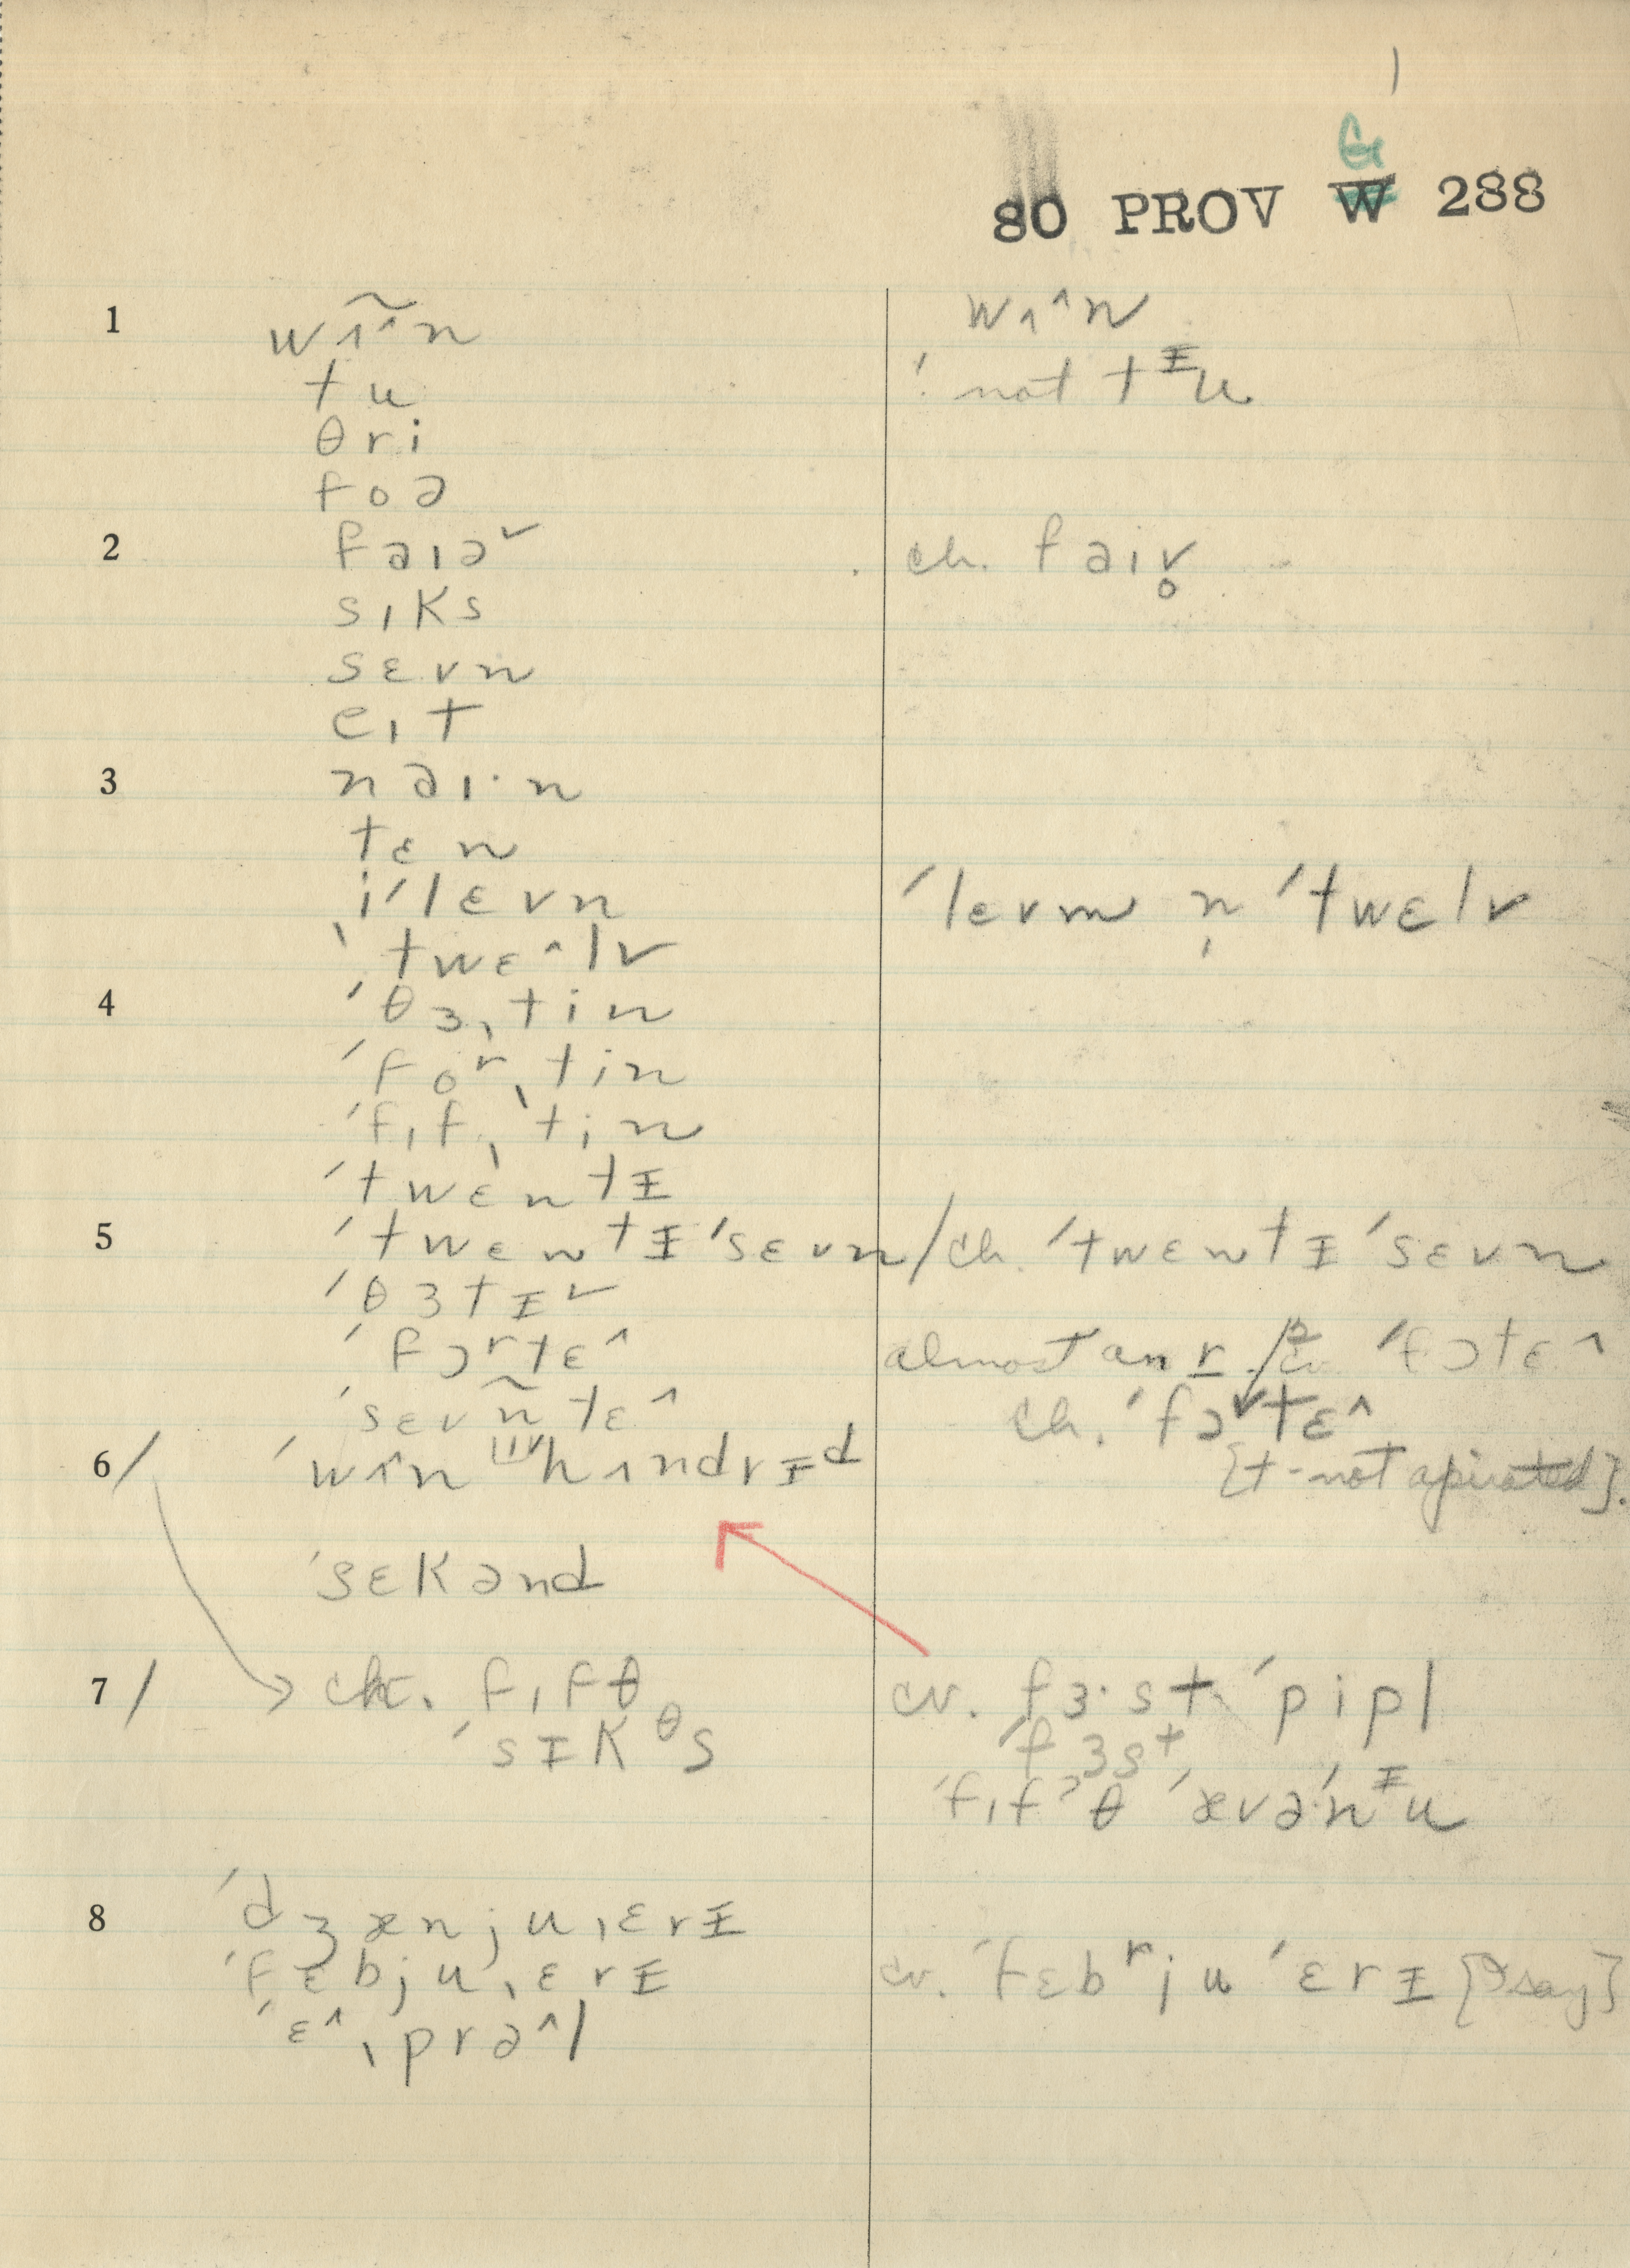 1
G
80 PROV W 288
1 wɿ̃ˆn wɿˆn
tu ! not tᵻu
θri
foə
2 faɪəˇ ch. faɪv̥
sɪks
sɛvn
eɪt
3 naɪ·n
tɛn
ˌiˈlɛvn ˈlɛvm n̩ ˈtwɛlv
ˈtwɛˆlv
4 ˈθɜˌtin
ˈfoʳˌtin
ˈfɪfˌtin
ˈtwɛntᵻ
5 ˈtwɛntᵻˈsɛvn / ch. ˈtwɛntᵻˈsɛvn
ˈθɜtᵻˇ
ˈfɔʳtɛˆ almost an r / cv ˈfɔtɛˆ
ˈsɛvñtɛˆ ch. ˈfɔˇtɛˆ
6 / ˈwɿˆn hɿndrᵻᵈ [t - not apirated].
ˈsɛkənd
7 / ch. fɪfθ cv. fɜ·st ˈpipl
ˈsᵻkᶿs ˈfɜsᵗ
ˈfɪfˀθ ˈævəˈnᵻu
8 ˈdʒænjuˌɛrᵻ
ˈfɛbjuˌɛrᵻ cv. ˈfɛbʳjuˈɛrᵻ [I say]
ˈɛˆˌprəˆl